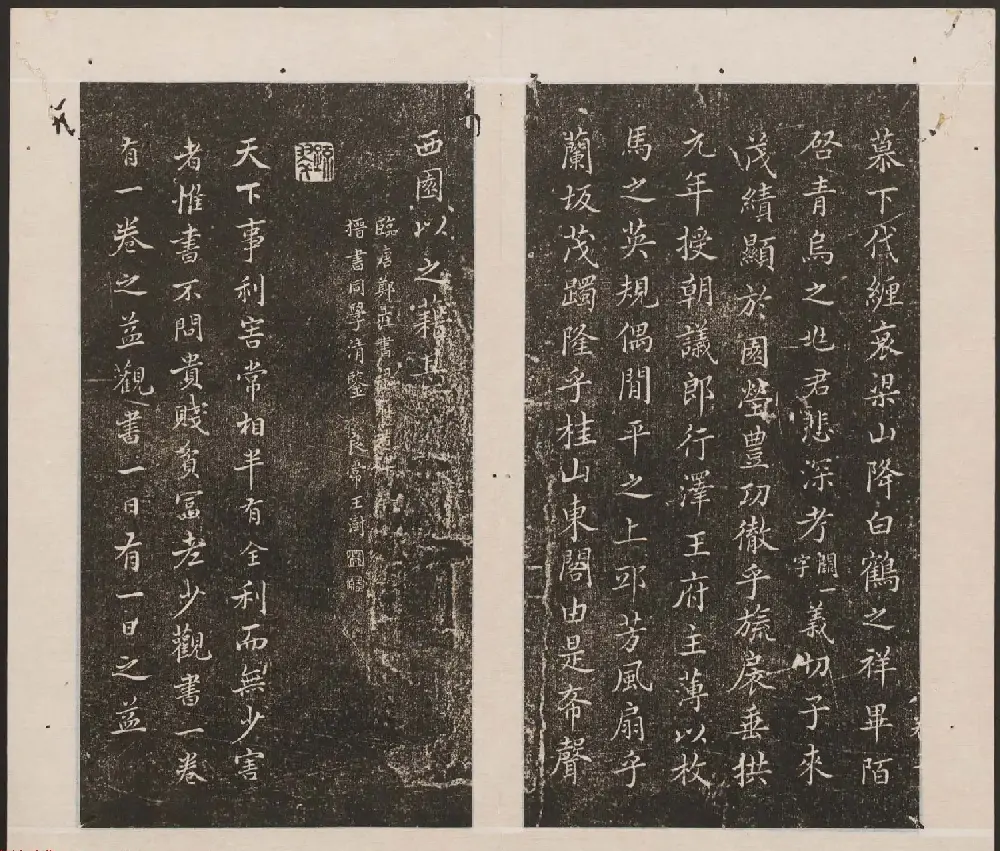 慕下代纏哀梁山降白鶴之祥畢陌
啓青烏之兆君悲深考闕一字義切子來
茂績顯於國塋豊功徹乎旒扆垂拱
元年授朝議郎行澤王府主薄以枚
馬之英規偶間平之上邸芳風扇乎
蘭坂茂躅隆乎桂山東閤由是希聲
西園以之藉甚
臨唐鄭
搢書同學清鑒 良常王澍
天下事利害常相半有全利而無少害
者惟書不問貴賤貧富老少觀書一卷
有一卷之益觀書一日有一日之益